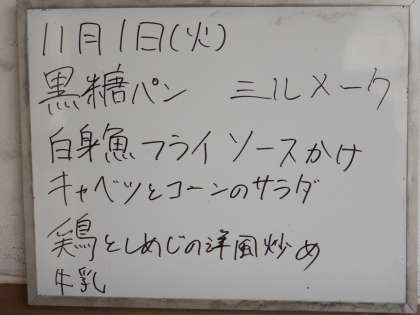 11月1日(火)
黒糖パン ミルメーク
白身魚フライ ソースかけ
キャベツとコーンのサラダ
鶏としめじの洋風炒め
牛乳